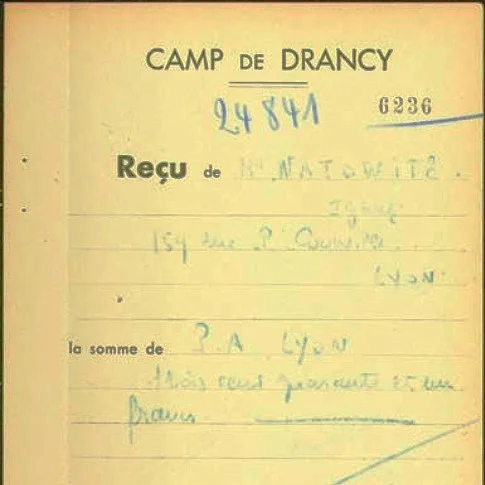 CAMP DE DRANCY
24841 6236
Reçu de Mr NATOWITZ.
159 rue P.
LYON
la somme de P. A LYON
trois cent quarante et un
francs